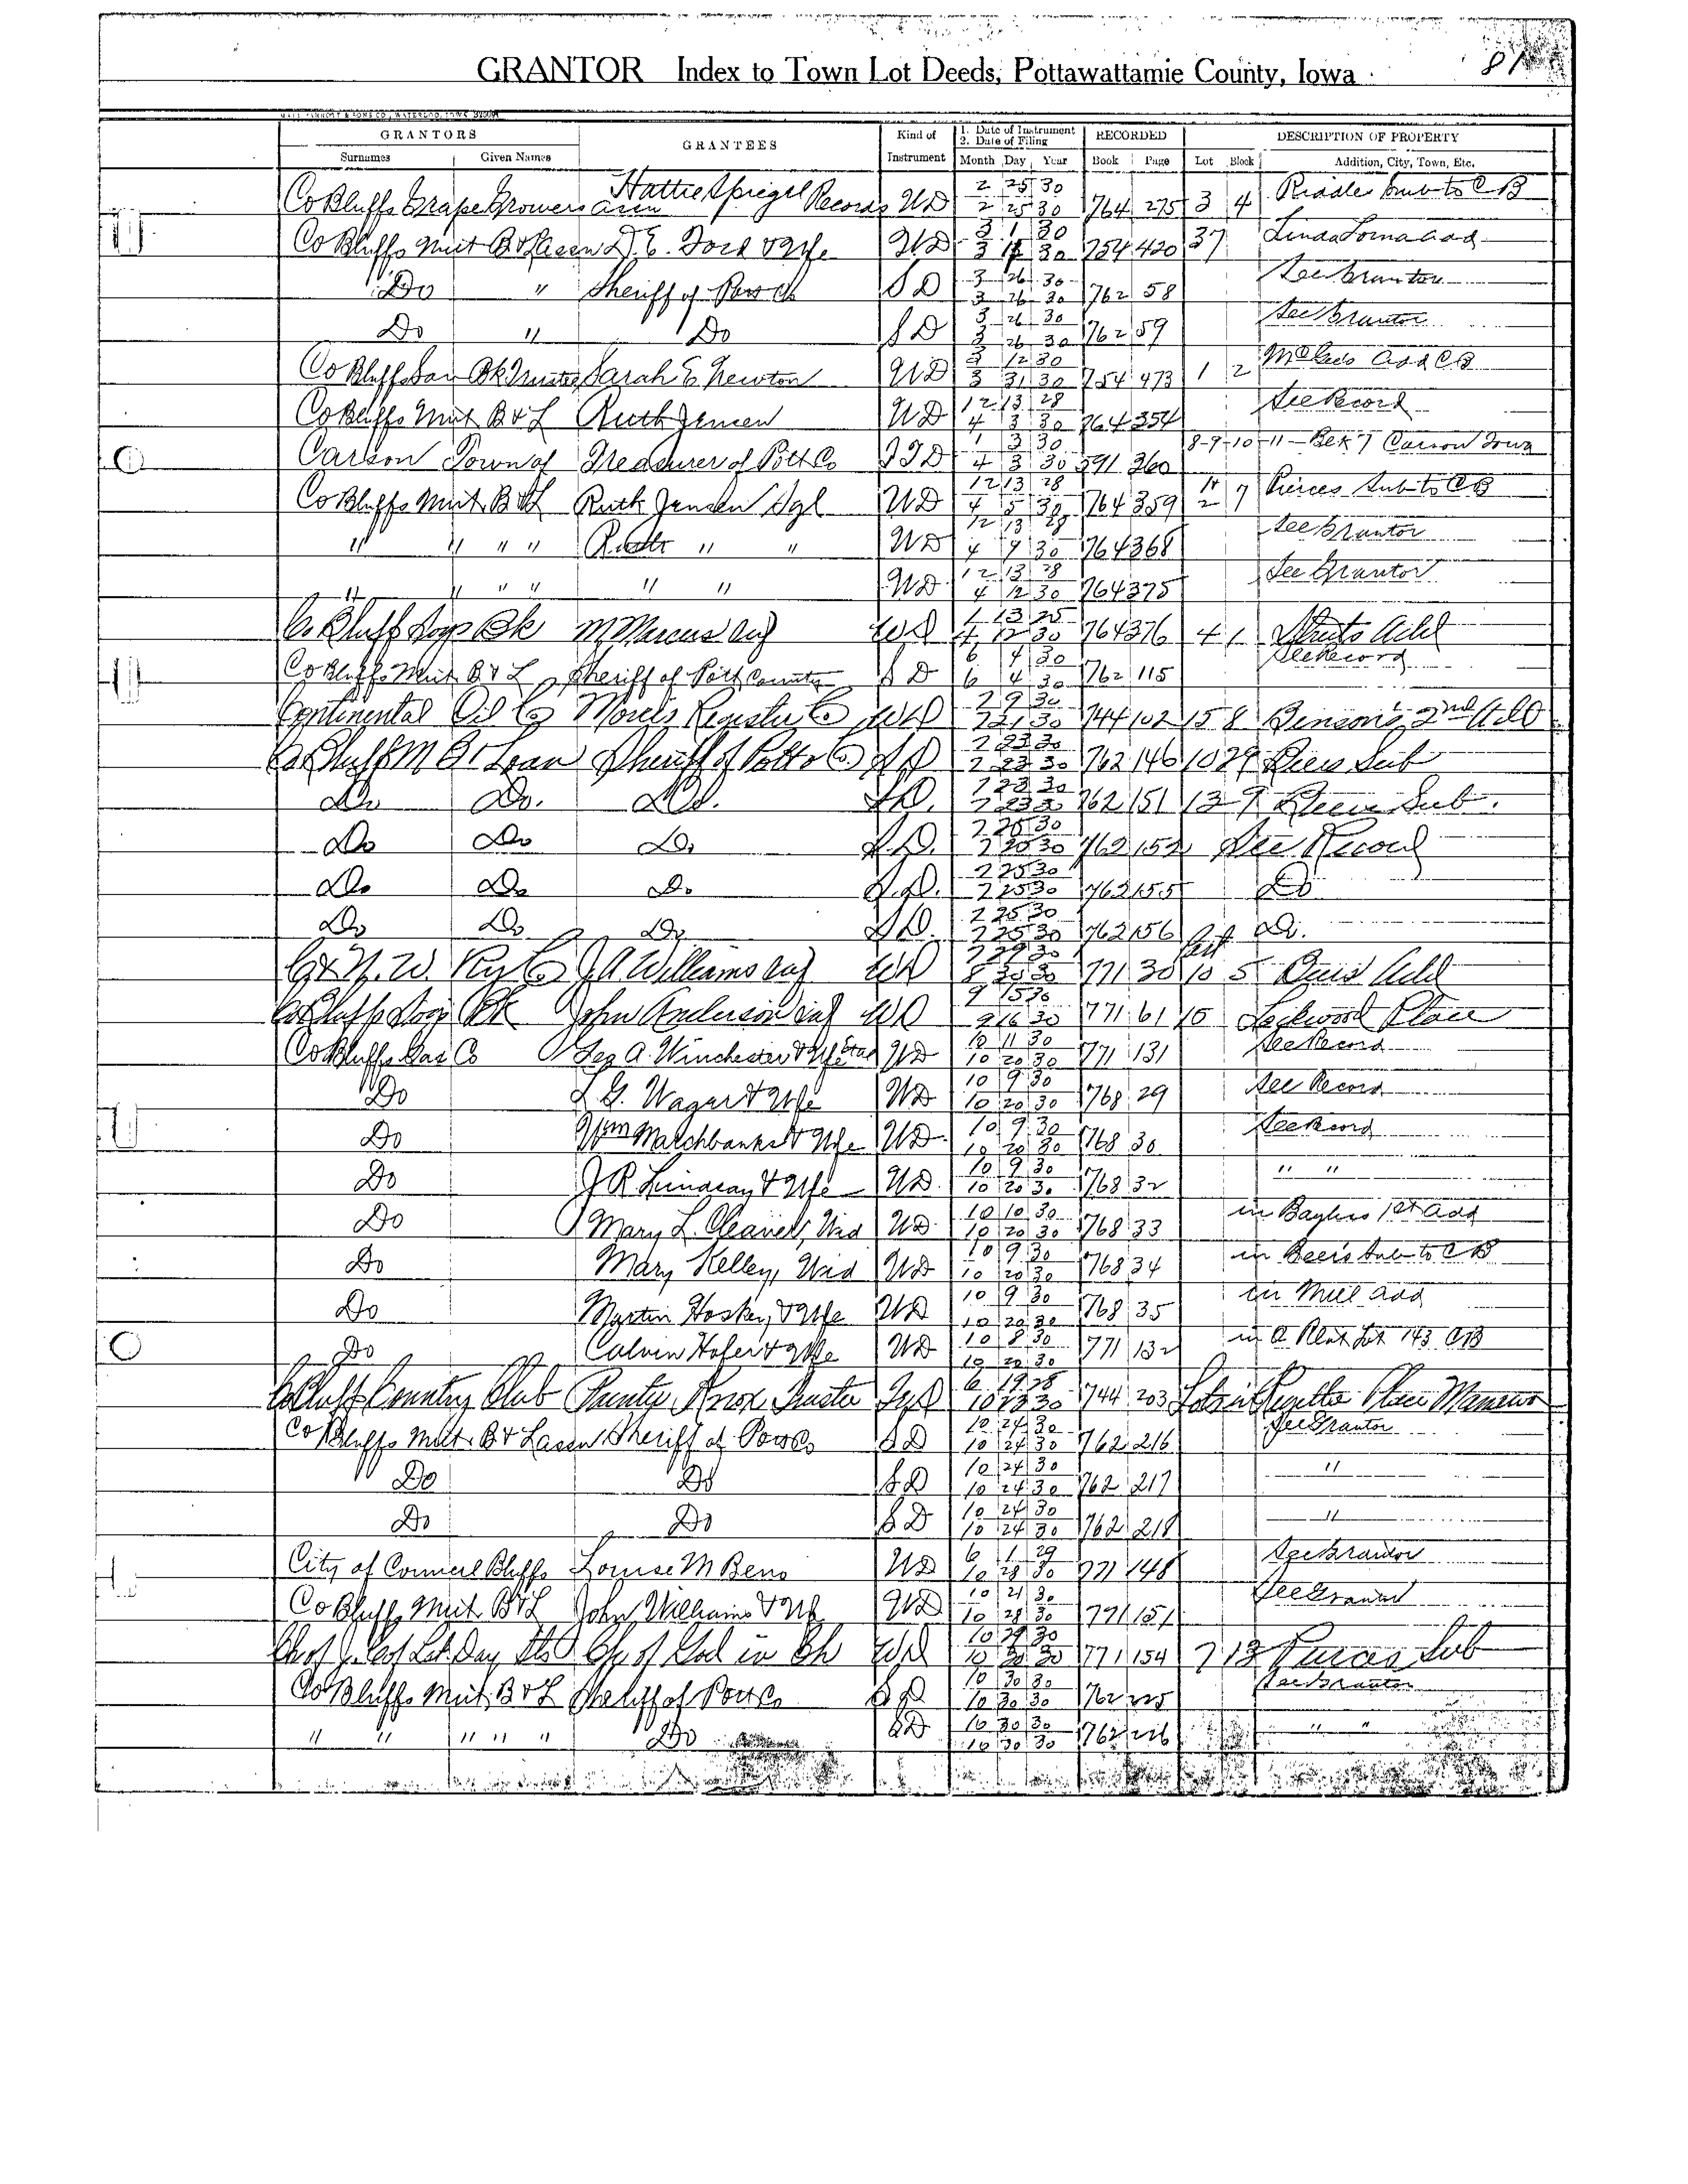 GRANTOR Index to Town Lot Deeds, Pottawattamie County, Iowa 81
GRANTORS GRANTEES Kind of Instrument 1. Date of Instrument 2. Date of Filing RECORDED DESCRIPTION OF PROPERTY
Surnames Given Names Month Day Year Book Page Lot Block Addition, City, Town, Etc.
Co Bluffs Grape Growers assn Hattie Spiegel Records WD 2 25 30 2 25 30 764 275 3 4 Riddles sub to C B
Co Bluffs Mut B & L assn D. E. Ford & Wfe WD 3 1 30 3 30 754 420 37 Linda Loma add
Do " Sheriff of Pott Co SD 3 26 30 3 26 30 762 58 See Grantor
Do " Do SD 3 26 30 3 26 30 762 59 See Grantor
Co Bluffs Sav Bk Trustee Sarah E Newton WD 3 12 30 3 31 30 754 473 1 2 add C B
Co Bluffs Mut B & L Ruth Jensen WD 12 13 28 4 3 30 764 354 See Record
Carson Town of Treasurer of Pott Co TTD 1 3 30 4 3 30 591 360 8-9-10-11 - Blk 7 Carson Iowa
Co Bluffs Mut B & L Ruth Jensen Sgl WD 12 13 28 4 5 30 764 359 2 7 Pierces Sub to C B
" " " " Ruth " " WD 12 13 28 4 9 30 764 368 See Grantor
" " " " " " WD 12 13 28 4 12 30 764 375 See Grantor
Co Bluff Svgs Bk M Marcus WD 1 13 25 4 12 30 764 376 4 1 Add
Co Bluffs Mut B & L Sheriff of Pott County SD 6 4 30 6 4 30 762 115 See Record
Continental Oil Co Morris Register Co WD 7 9 30 7 21 30 744 102 15 8 Benson's 2nd Add
Co Bluff M B & Loan Sheriff of Pott Co SD 7 23 30 7 23 30 762 146 10 29 Beers Sub
Do Do. Do. SD. 7 23 30 7 23 30 762 151 13 9 Beers Sub.
Do Do Do S.D. 7 25 30 7 25 30 762 152 See Record
Do Do Do S.D. 7 25 30 7 25 30 762 155 Do
Do Do Do SD. 7 25 30 7 25 30 762 156 Do.
C & N. W. Ry Co J A Williams WD 7 29 30 8 30 30 771 30 10 5 Add
Co Bluffs Svgs Bk John Anderson WD 9 15 30 9 16 30 771 61 15 Lockwood Place
Co Bluffs Gas Co Geo A. Winchester & Wfe Etal WD 10 11 30 10 20 30 771 131 See Record
Do L G. Wagar & Wfe WD 10 9 30 10 20 30 768 29 See Record
Do Wm Marchbanks & Wfe WD 10 9 30 10 20 30 768 30 See Record
Do J R Lindsay & Wfe WD 10 9 30 10 20 30 768 32 " "
Do Mary L. Cleaver, Wid WD 10 10 30 10 20 30 768 33 in Bayliss 1st add
Do Mary Kelley, Wid WD 10 9 30 10 20 30 768 34 in Beers Sub to C B
Do Martin Hoskey & Wfe WD 10 9 30 10 20 30 768 35 in Mill add
Do Calvin Hafer & Wfe WD 10 8 30 10 20 30 771 132 in O Plat Lot 143 CB
Co Bluff Country Club Knox Trustee 6 19 28 10 23 30 744 203 Lots in Place
Co Bluffs Mut. B & L assn Sheriff of Pott Co SD 10 24 30 10 24 30 762 216 See Grantor
Do Do SD 10 24 30 10 24 30 762 217 "
Do Do SD 10 24 30 10 24 30 762 218 "
City of Council Bluffs Louise M Beno WD 6 1 29 10 28 30 771 148 See Grantor
Co Bluffs Mut B & L John Williams & Wfe WD 10 21 30 10 28 30 771 151 See Grantor
Ch of J. C. of Lat Day Sts Ch. of God in Ch WD 10 29 30 10 30 30 771 154 7 13 Pierces Sub
Co Bluffs Mut B & L Sheriff of Pott Co SD 10 30 30 10 30 30 762 225 See Grantor
" " " " " Do SD 10 30 30 10 30 30 762 226 " "